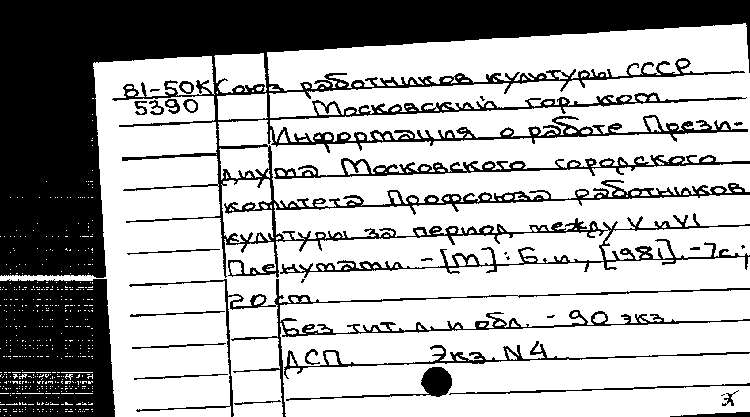 81-50К Союз работников культуры СССР.
5390 Московский гор. ком.
Информация о работе Прези-
диума Московского городского
комитета Профсоюза работников
культуры за период между V и VI
Пленумами. - [М.]: Б.и., [1981]. - 7с.;
20 см.
Без тит. л. и обл. - 90 экз.
ДСП. Экз. N4.